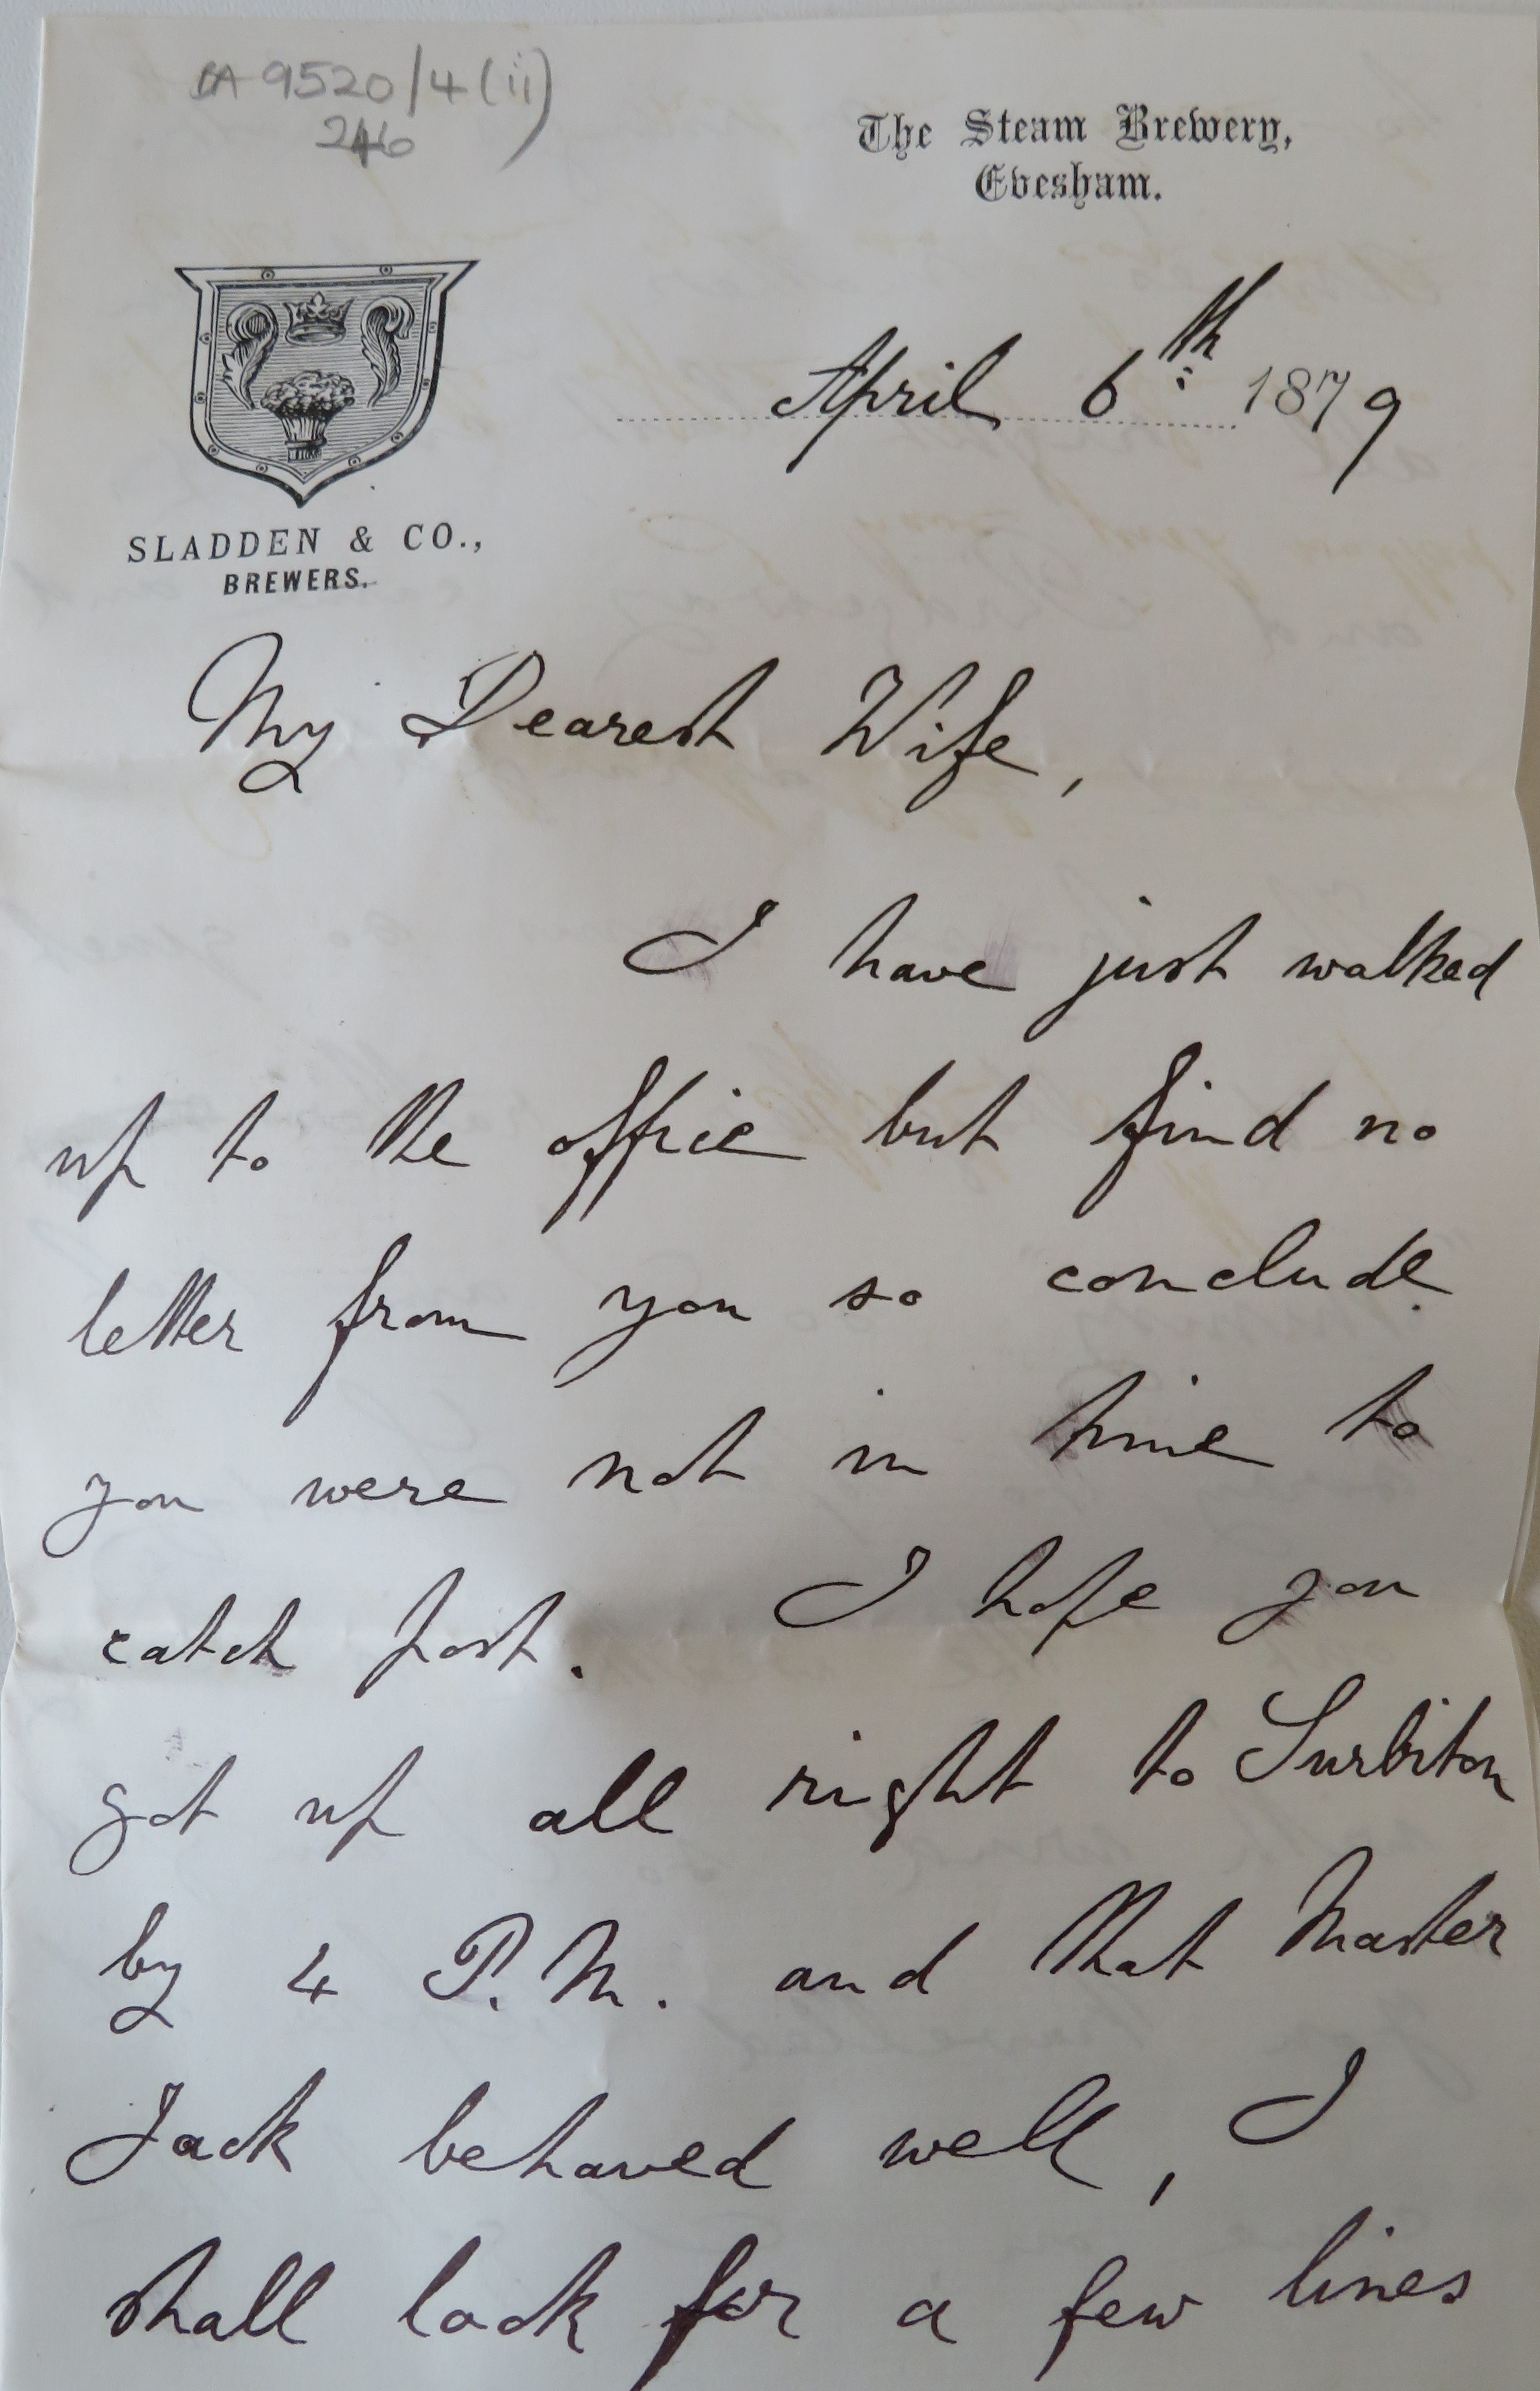 BA 9520/4(ii)
246
The Steam Brewery,
Evesham.
April 6th 1879
SLADDEN & CO.,
BREWERS.
My Dearest Wife,
I have just walked
up to the office but find no
letter from you so conclude
you were not in time to
catch post. I hope you
got up all right to Surbiton
by 4 P.M. and that Master
Jack behaved well, I
shall look for a few lines